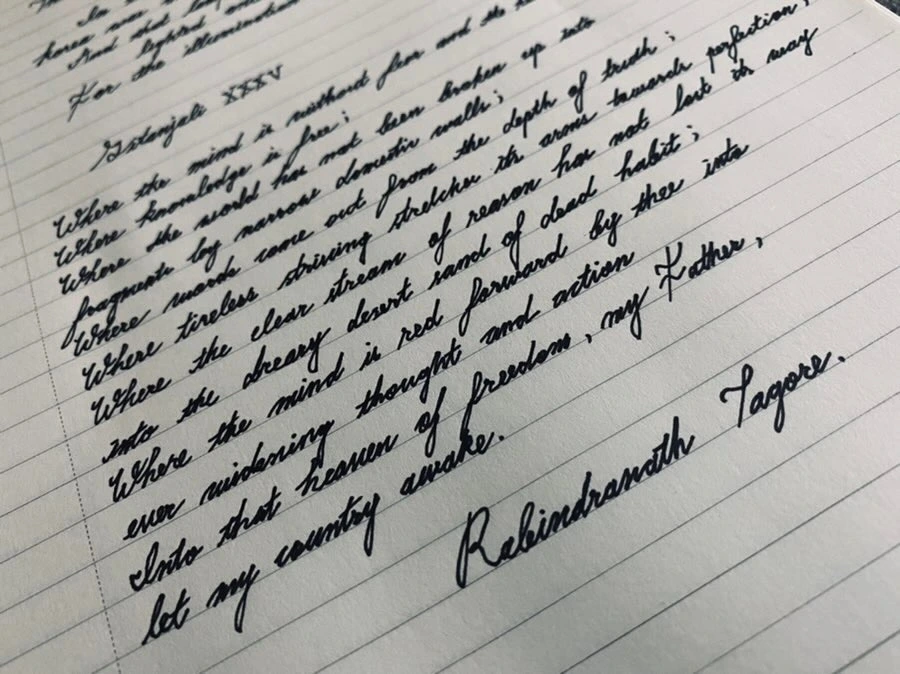 In
Korea was
And that
lighted
For the illumination
Gitanjali XXXV
Where the mind is without fear and the
Where knowledge is free;
Where the world has not been broken up into
fragments by narrow domestic walls;
Where words come out from the depth of truth;
Where tireless striving stretches its arms towards perfection;
Where the clear stream of reason has not lost its way
into the dreary desert sand of dead habit;
Where the mind is red forward by thee into
ever widening thought and action
Into that heaven of freedom, my Father,
let my country awake.
Rabindranath Tagore.